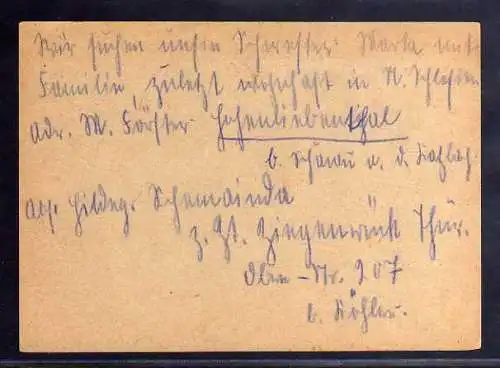 Wir suchen unsere Schwester Marta mit
Familie, zuletzt wohnhaft in N. Schlesien
Adr. M. Förster Hohenliebenthal
b. Schönau a. d. Katzbach
Abs. Hildeg. Schemainda
z. Zt. Ziegenrück Thür.
Str. 207
b. Köhler.